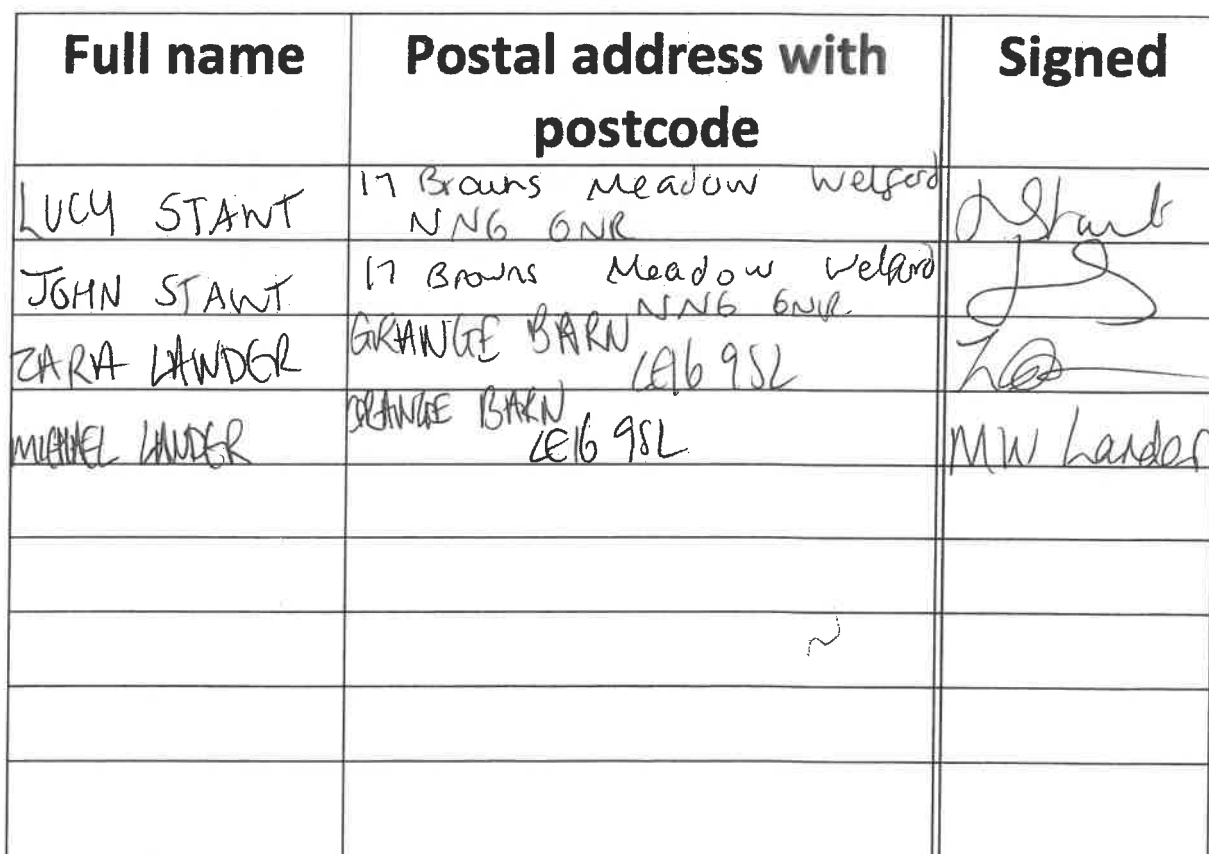 Full name Postal address with postcode Signed
LUCY STANT 17 Browns Meadow Welford
NN6 6NR
JOHN STANT 17 Browns Meadow Welford
NN6 6NR
ZARA LANDER GRANGE BARN
LE16 9SL
MICHAEL LANDER GRANGE BARN
LE16 9SL MW Lander